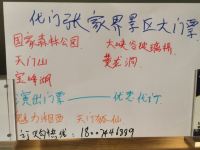 代订张家界景区大门票
国家森林公园 大峡谷玻璃桥
天门山 黄龙洞
宝峰湖
演出门票——优惠代订
魅力湘西 天门狐仙
订购热线: